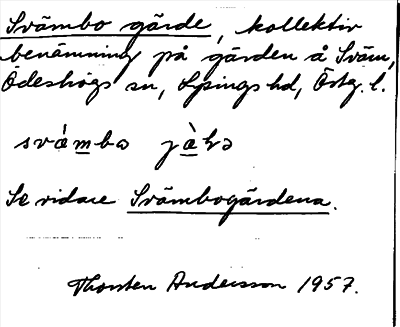 Svämbo gärde, kollektiv
benämning på gärden å Sväm,
Ödeshögs sn, Lysings hd, Östg. l.
Se vidare Svämbogärdena.
Thorsten Andersson 1957.